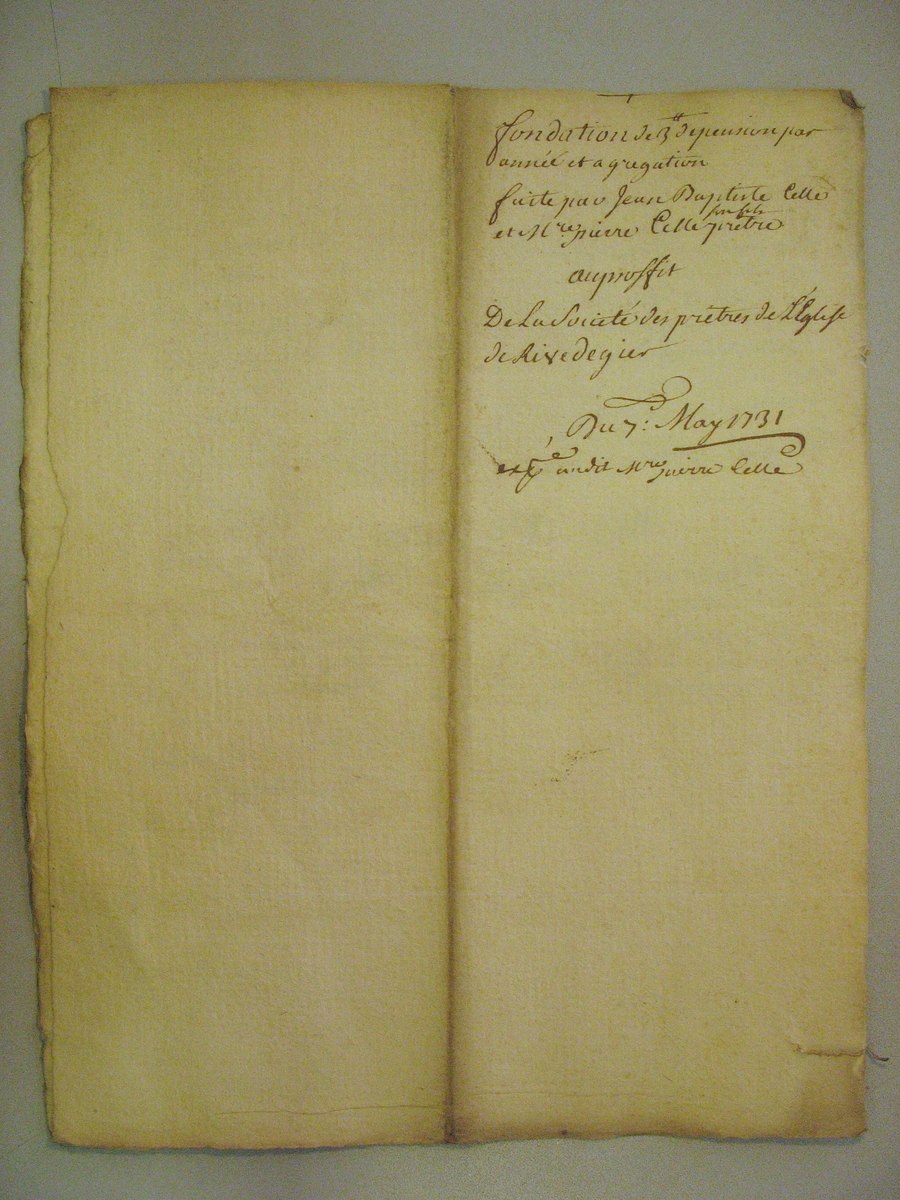 fondation de 3ᵗᵗ de pension par
année et agregation
faite par Jean Baptiste Celle
son fils
et Mre pierre Celle prêtre
au proffit
De La Societé des prêtres de L'Eglise
de Rivedegier
Du 7e: May 1731
expé audit Mre pierre Celle